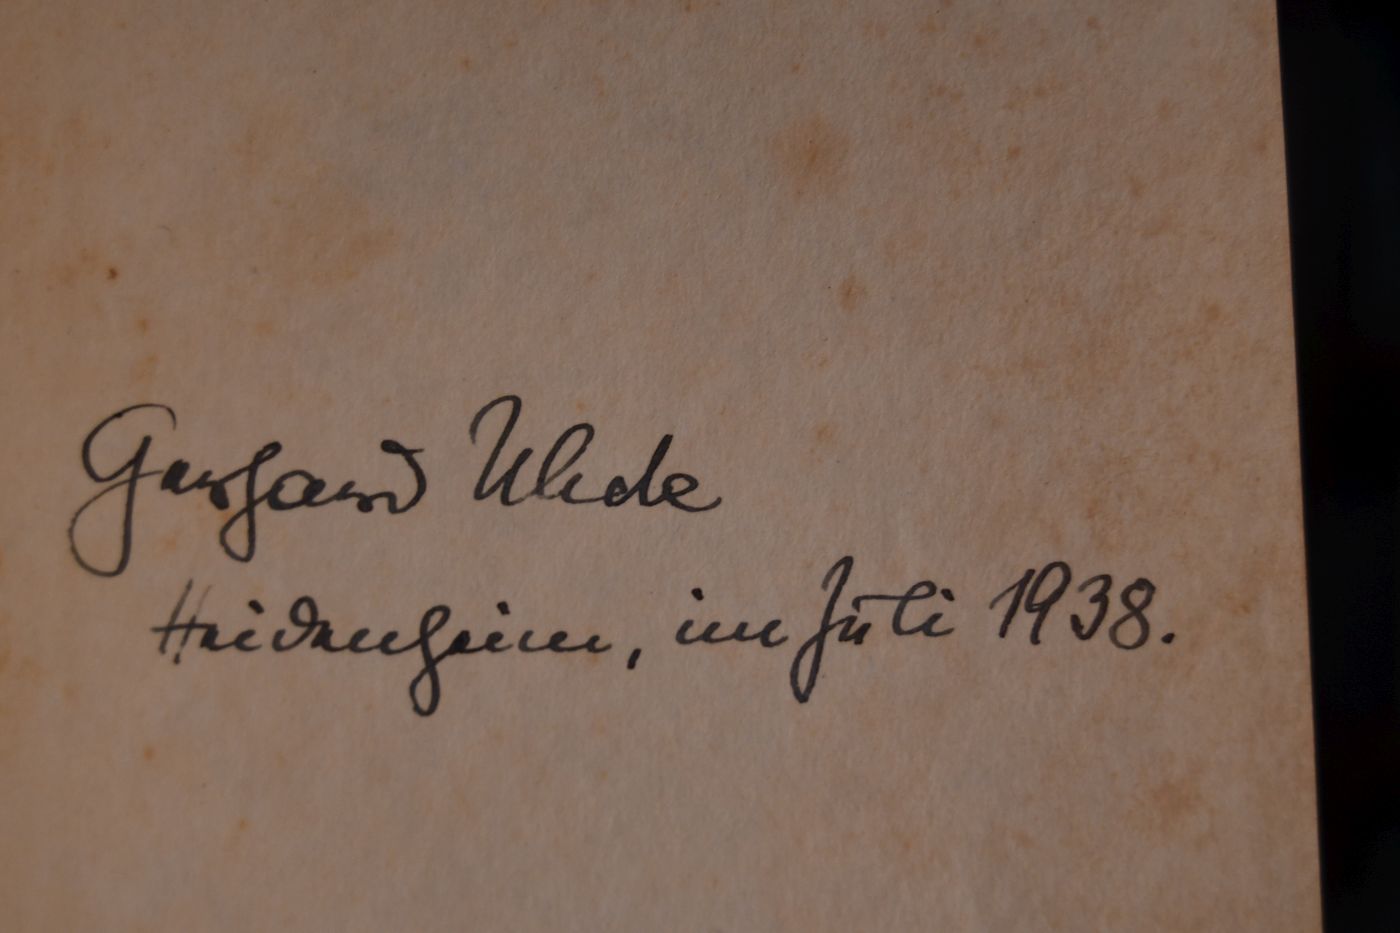 Gerhard Uhde
Heidenheim, im Juli 1938.